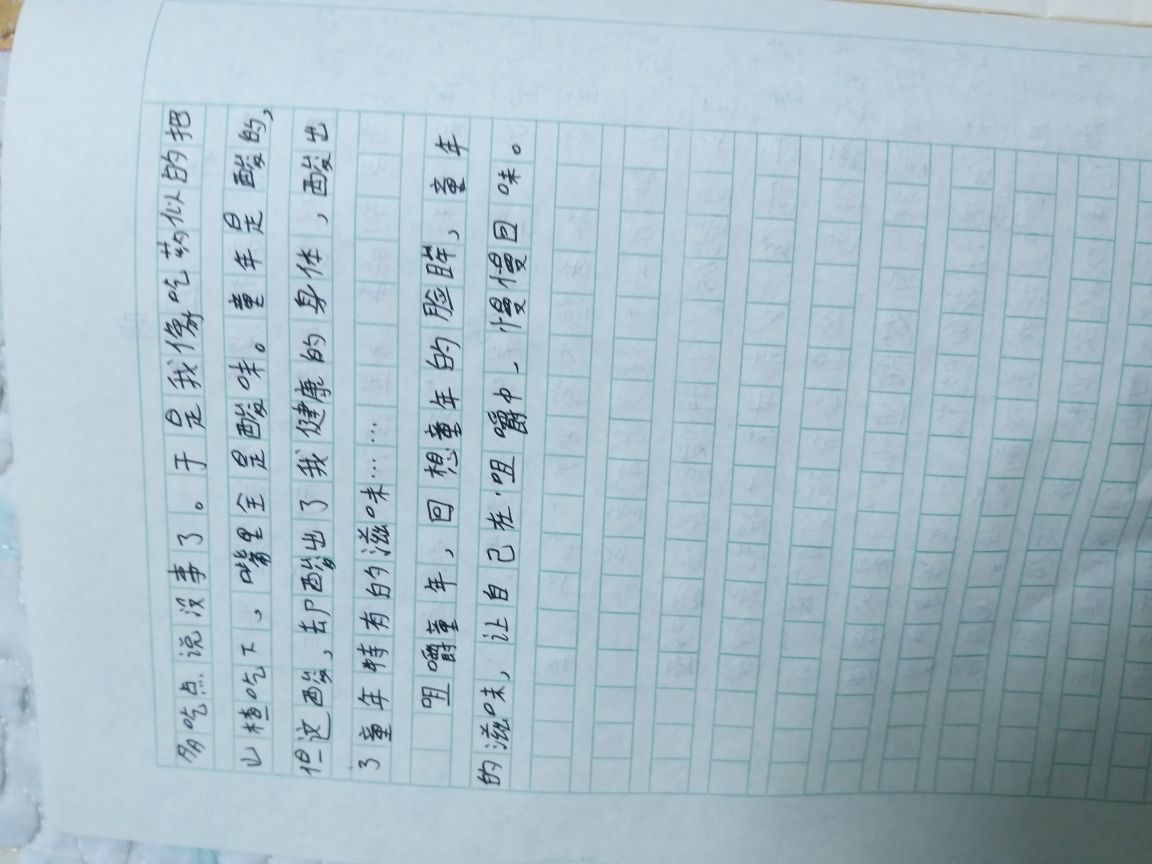 多吃点说没事了。于是我像吃药似的把
山楂吃下，嘴里全是酸味。童年是酸的，
但这酸，却酸出了我健康的身体，酸出
了童年特有的滋味……
咀嚼童年，回想童年的脸眸，童年
的滋味，让自己在咀嚼中，慢慢回味。